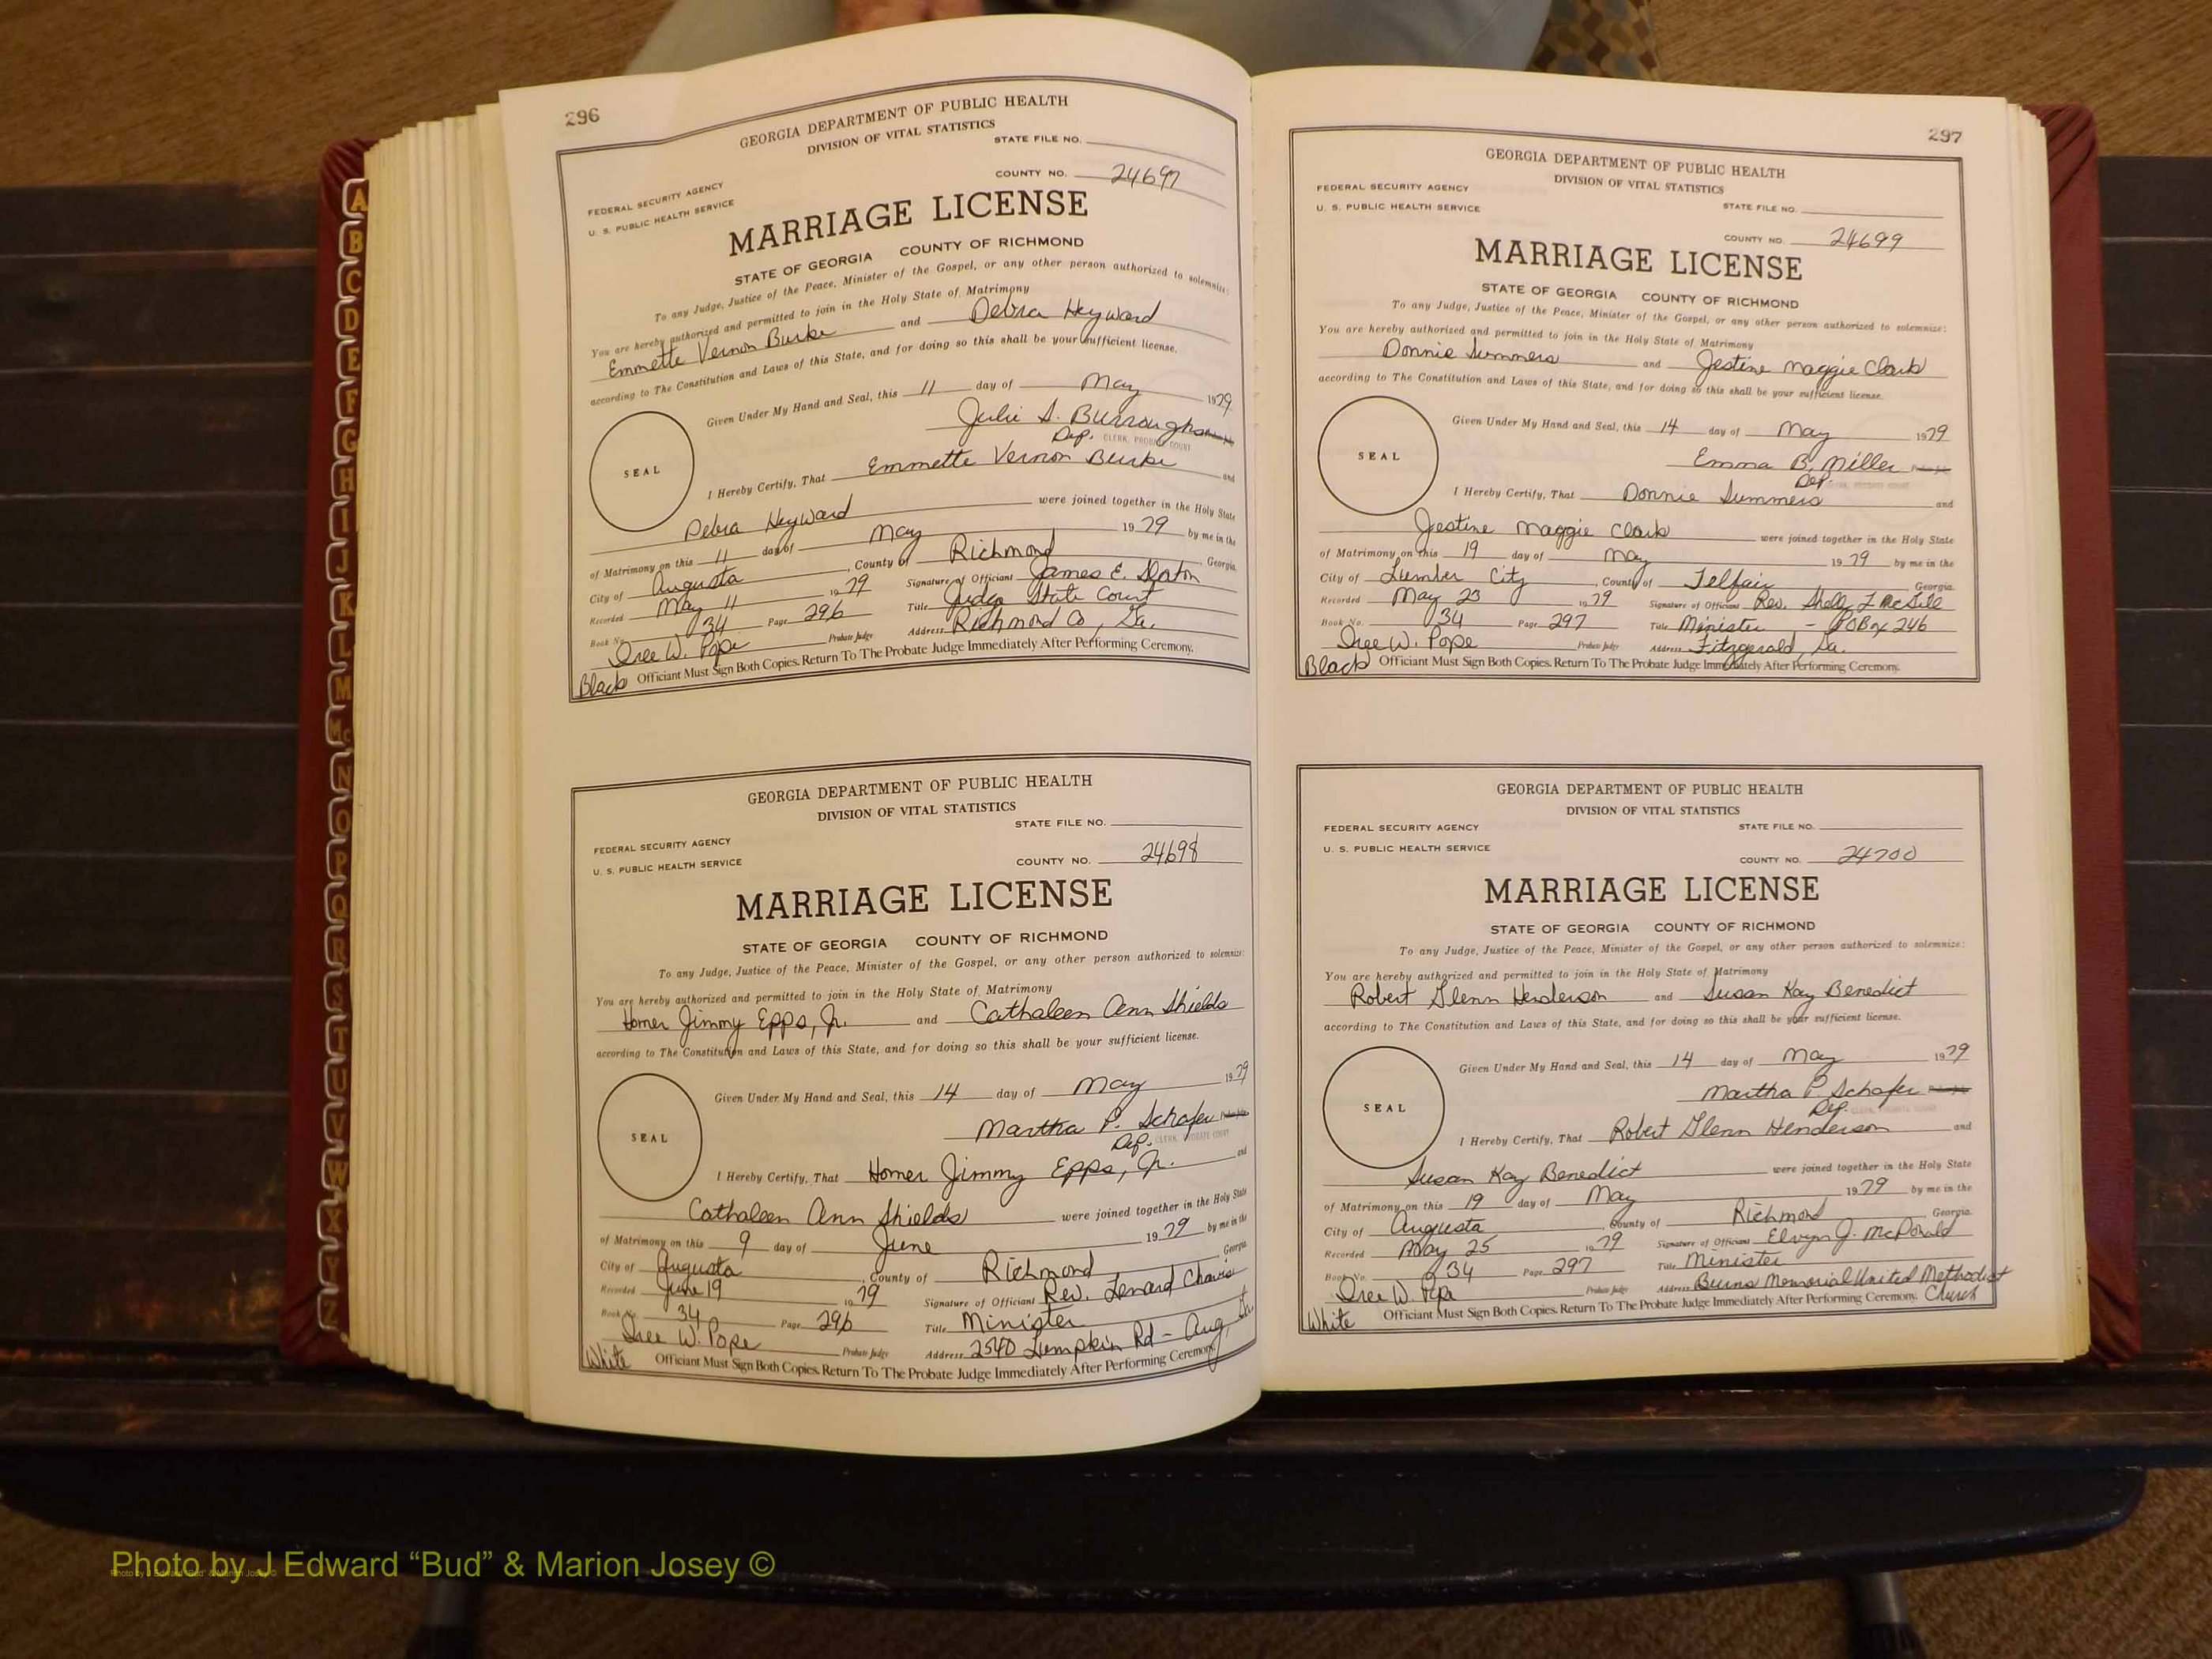 296
GEORGIA DEPARTMENT OF PUBLIC HEALTH
DIVISION OF VITAL STATISTICS
STATE FILE NO.
FEDERAL SECURITY AGENCY
U. S. PUBLIC HEALTH SERVICE
COUNTY NO. 24697
MARRIAGE LICENSE
STATE OF GEORGIA COUNTY OF RICHMOND
To any Judge, Justice of the Peace, Minister of the Gospel, or any other person authorized to solemnize:
You are hereby authorized and permitted to join in the Holy State of Matrimony
Emmette Vernon Burke and Debra Heyward
according to The Constitution and Laws of this State, and for doing so this shall be your sufficient license.
Given Under My Hand and Seal, this 11 day of May 1979
Julie S. Burroughs
Dep. CLERK, PROBATE COURT
SEAL
I Hereby Certify, That Emmette Vernon Burke and
Debra Heyward were joined together in the Holy State
of Matrimony on this 11 day of May 1979 by me in the
City of Augusta, County of Richmond Georgia.
Recorded May 11 1979 Signature of Officient James E. Slaton
Book No. 34 Page 296 Title Judge State Court
Iree W. Pope Probate Judge Address Richmond Co, Ga.
Black Officiant Must Sign Both Copies. Return To The Probate Judge Immediately After Performing Ceremony.
GEORGIA DEPARTMENT OF PUBLIC HEALTH
DIVISION OF VITAL STATISTICS
STATE FILE NO.
FEDERAL SECURITY AGENCY
U. S. PUBLIC HEALTH SERVICE
COUNTY NO. 24698
MARRIAGE LICENSE
STATE OF GEORGIA COUNTY OF RICHMOND
To any Judge, Justice of the Peace, Minister of the Gospel, or any other person authorized to solemnize:
You are hereby authorized and permitted to join in the Holy State of Matrimony
Homer Jimmy Epps, Jr. and Cathaleen Ann Shields
according to The Constitution and Laws of this State, and for doing so this shall be your sufficient license.
Given Under My Hand and Seal, this 14 day of May 1979
Martha P. Schafer
Dep. CLERK, PROBATE COURT
SEAL
I Hereby Certify, That Homer Jimmy Epps, Jr. and
Cathaleen Ann Shields were joined together in the Holy State
of Matrimony on this 9 day of June 1979 by me in the
City of Augusta, County of Richmond Georgia.
Recorded June 19 1979 Signature of Officient Rev. Lenard Chavis
Book No. 34 Page 296 Title Minister
Iree W. Pope Probate Judge Address 2540 Lumpkin Rd - Aug, Ga.
White Officiant Must Sign Both Copies. Return To The Probate Judge Immediately After Performing Ceremony.
297
GEORGIA DEPARTMENT OF PUBLIC HEALTH
DIVISION OF VITAL STATISTICS
FEDERAL SECURITY AGENCY
U. S. PUBLIC HEALTH SERVICE
STATE FILE NO.
COUNTY NO. 24699
MARRIAGE LICENSE
STATE OF GEORGIA COUNTY OF RICHMOND
To any Judge, Justice of the Peace, Minister of the Gospel, or any other person authorized to solemnize:
You are hereby authorized and permitted to join in the Holy State of Matrimony
Donnie Summers and Jestine Maggie Clark
according to The Constitution and Laws of this State, and for doing so this shall be your sufficient license.
Given Under My Hand and Seal, this 14 day of May 1979
Emma B. Miller
Dep. CLERK, PROBATE COURT
SEAL
I Hereby Certify, That Donnie Summers and
Jestine Maggie Clark were joined together in the Holy State
of Matrimony on this 19 day of May 1979 by me in the
City of Lumber City, County of Telfair Georgia.
Recorded May 23 1979 Signature of Officient Rev.
Book No. 34 Page 297 Title Minister - PO Box 246
Iree W. Pope Probate Judge Address Fitzgerald, Ga.
Black Officiant Must Sign Both Copies. Return To The Probate Judge Immediately After Performing Ceremony.
GEORGIA DEPARTMENT OF PUBLIC HEALTH
DIVISION OF VITAL STATISTICS
FEDERAL SECURITY AGENCY
STATE FILE NO.
U. S. PUBLIC HEALTH SERVICE
COUNTY NO. 24700
MARRIAGE LICENSE
STATE OF GEORGIA COUNTY OF RICHMOND
To any Judge, Justice of the Peace, Minister of the Gospel, or any other person authorized to solemnize:
You are hereby authorized and permitted to join in the Holy State of Matrimony
Robert Glenn Henderson and Susan Kay Benedict
according to The Constitution and Laws of this State, and for doing so this shall be your sufficient license.
Given Under My Hand and Seal, this 14 day of May 1979
Martha P. Schafer
Dep. CLERK, PROBATE COURT
SEAL
I Hereby Certify, That Robert Glenn Henderson and
Susan Kay Benedict were joined together in the Holy State
of Matrimony on this 19 day of May 1979 by me in the
City of Augusta, County of Richmond Georgia.
Recorded May 25 1979 Signature of Officient Elvyn J. McDonald
Book No. 34 Page 297 Title Minister
Iree W. Pope Probate Judge Address Burns Memorial United Methodist Church
White Officiant Must Sign Both Copies. Return To The Probate Judge Immediately After Performing Ceremony.
A
B
C
D
E
F
G
H
I
J
K
L
M
Mc
N
O
P
Q
R
S
T
U
V
W
X
Y
Z
Photo by J Edward “Bud” & Marion Josey ©